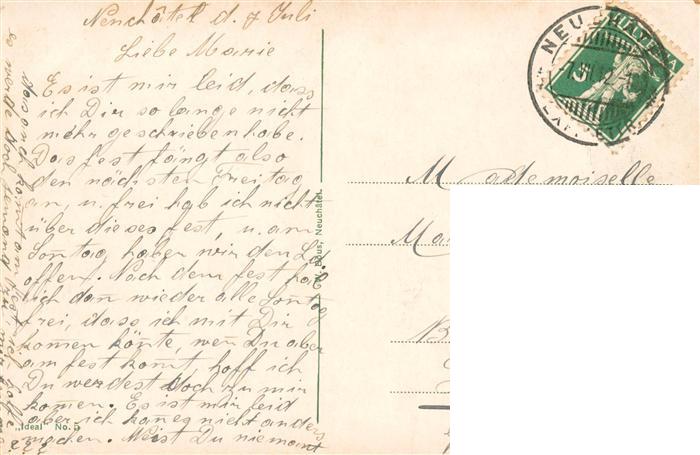 Neuchâtel d. 7 Juli
Liebe Marie
Es ist mir leid, dass
ich Dir so lange nicht
mehr geschrieben habe.
Das fest fängt also
den nächsten Freitag
an, u. frei hab ich nicht
über dieses fest, u. am
Sontag haben wir den Lad
offen. Nach dem fest hab
ich dan wieder alle Sontag
frei, dass ich mit Dir
komen könte, wen Du aber
am fest komt, hoff ich
Du werdest doch zu mir
komen. Es ist mir leid
aber ich kan es nicht anders
machen. Weist Du niemant
"Ideal" No. 5
W. Bous, Neuchâtel.
NEUCHÂTEL
HELVETIA
5
Mademoiselle
Ma
B